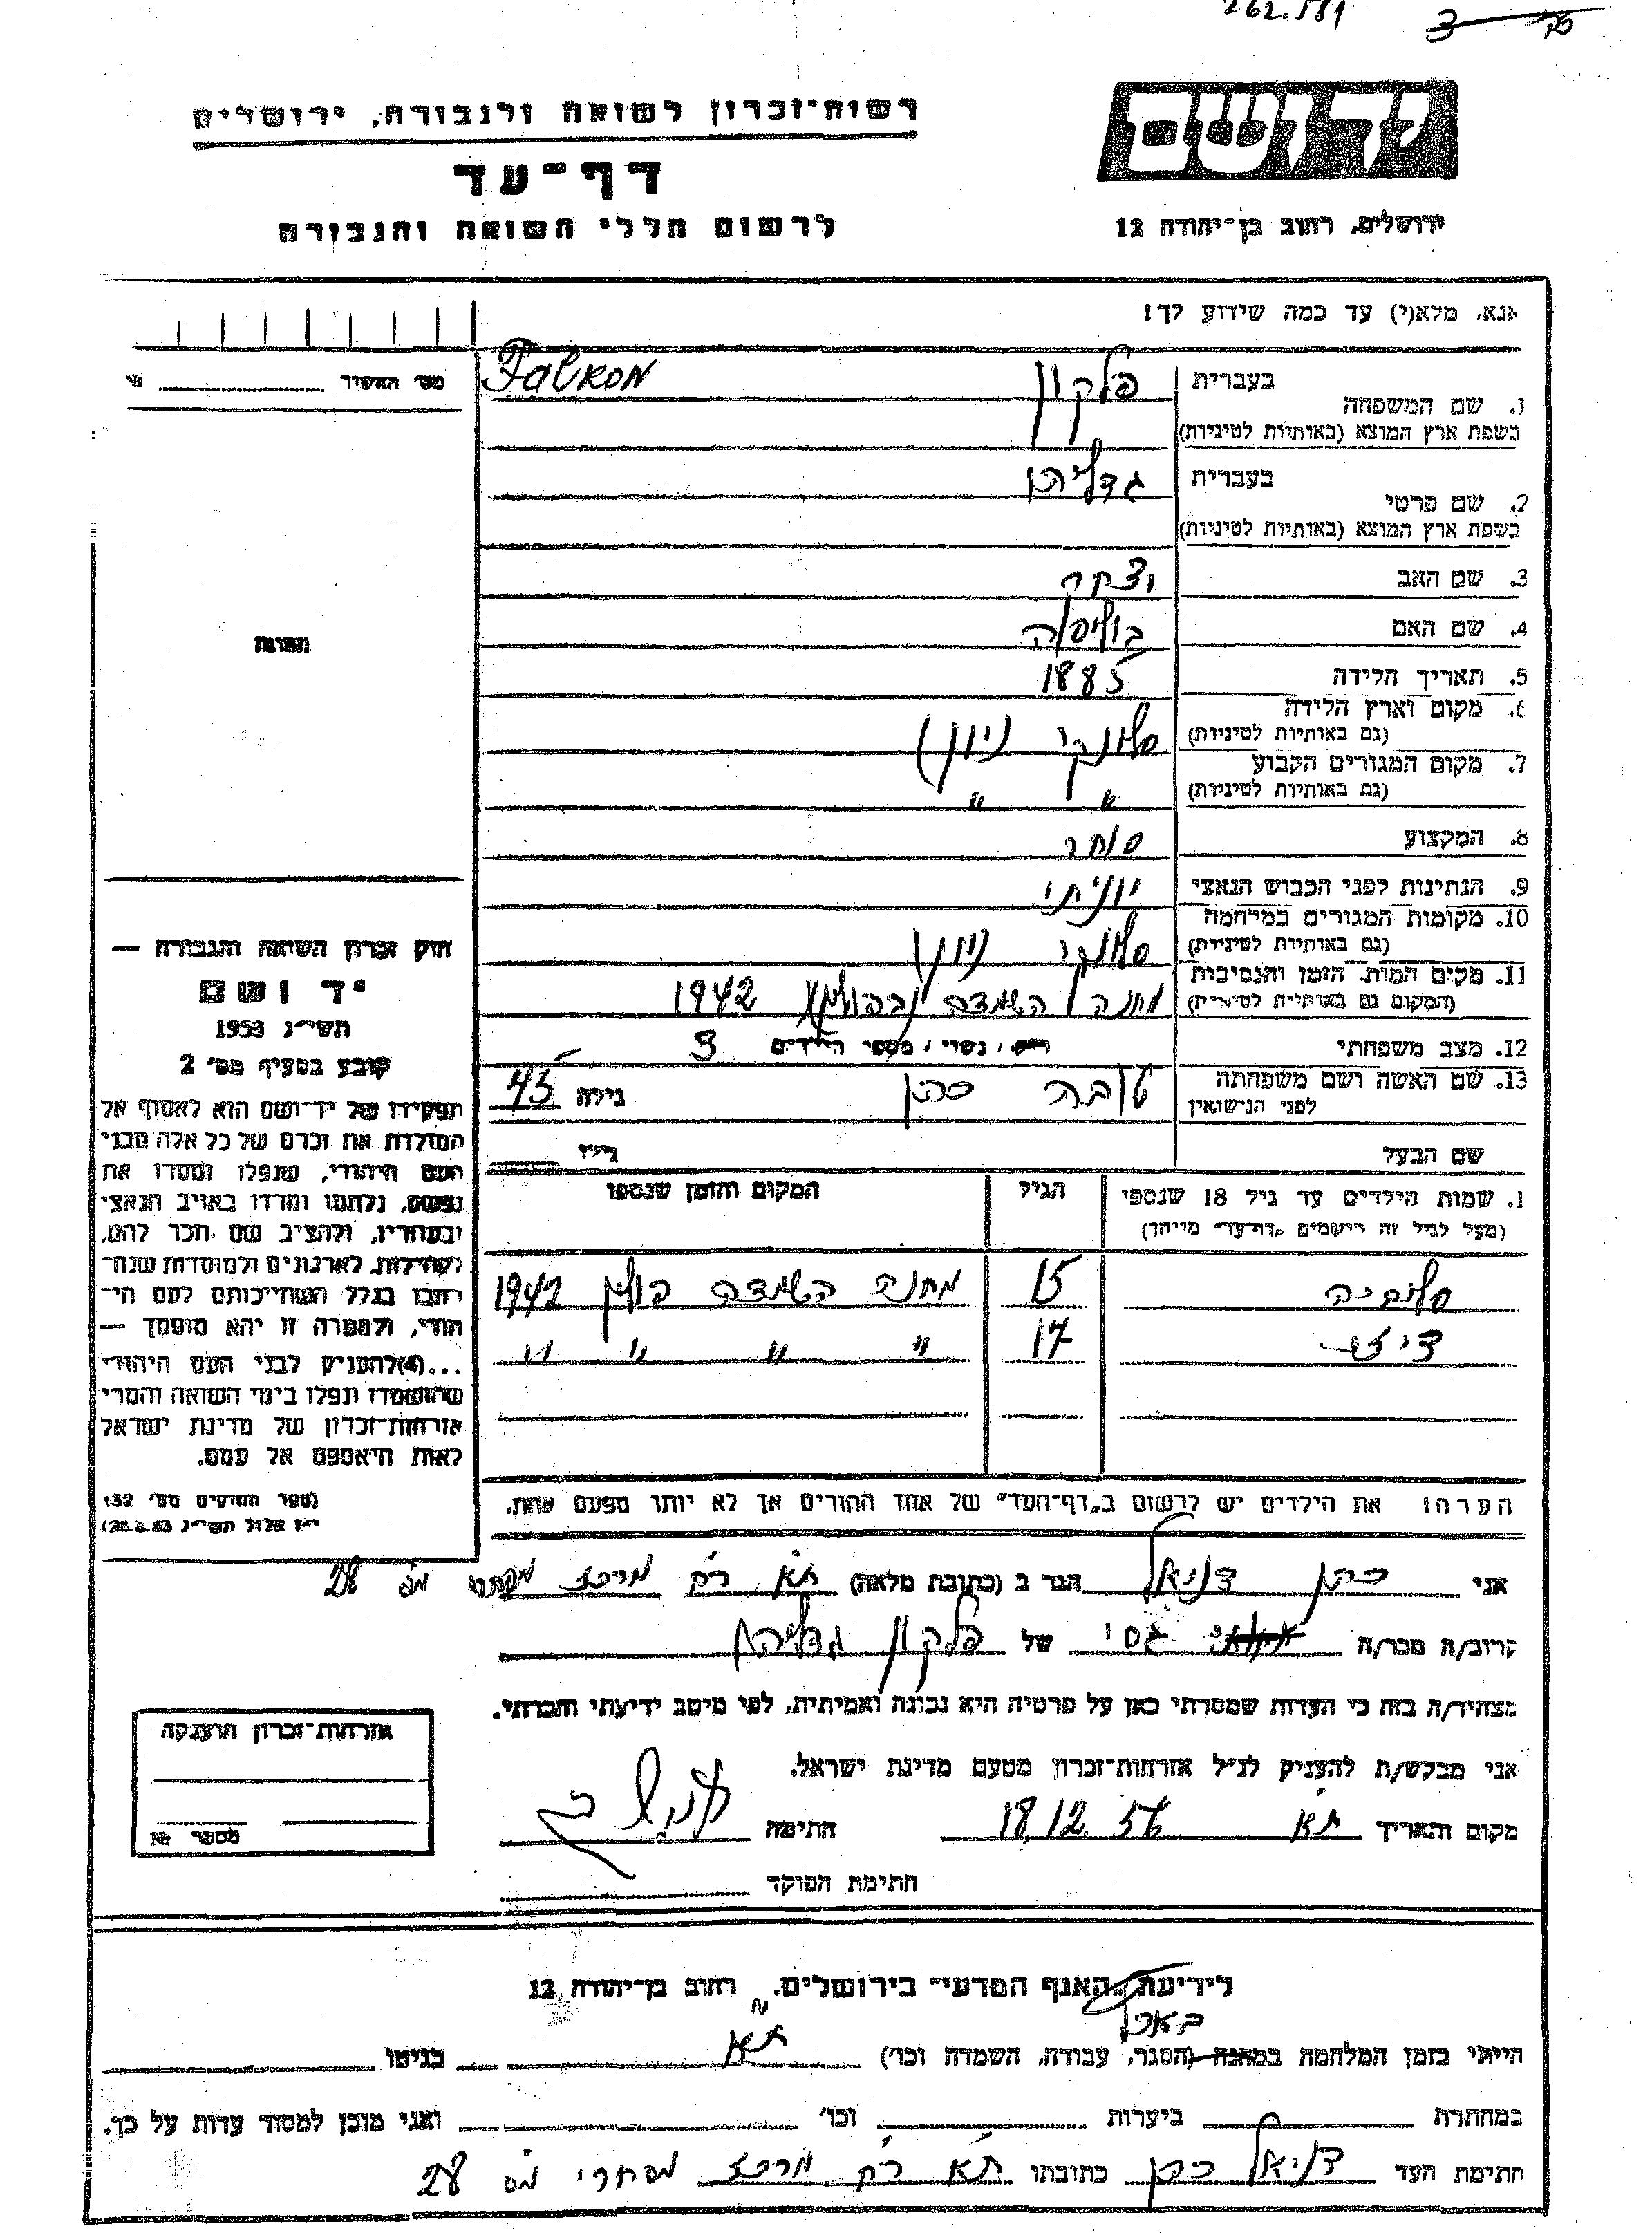 262.581
רשות-זכרון לשואה ולגבורה, ירושלים
דף-עד
לרשום חללי השואה והגבורה
יד ושם
ירושלים, רחוב בן-יהודה 12
אנא, מלא(י) עד כמה שידוע לך!
מס' האשיר
1. שם המשפחה
בעברית פלקון Falkon
בשפת ארץ המוצא (באותיות לטיניות)
2. שם פרטי
בעברית גדליהו
בשפת ארץ המוצא (באותיות לטיניות)
3. שם האב
4. שם האם
5. תאריך הלידה 1885
6. מקום וארץ הלידה סלוניקי (יון)
(גם באותיות לטיניות)
7. מקום המגורים הקבוע " "
(גם באותיות לטיניות)
8. המקצוע סוחר
9. הנתינות לפני הכבוש הנאצי יוניתי
10. מקומות המגורים במלחמה סלוניקי (יון)
(גם באותיות לטיניות)
11. מקום המות, הזמן והנסיבות מחנה השמדה (בפולין) 1942
(המקום גם באותיות לטיניות)
12. מצב משפחתי רווק / נשוי / מספר הילדים 3
13. שם האשה ושם משפחתה טובה כהן גילה 45
לפני הנישואין
שם הבעל גילו
1. שמות הילדים עד גיל 18 שנספו הגיל המקום והזמן שנספו
(מעל לגיל זה רישמים "דף-עד" מיוחד)
15 מחנה השמדה פולין 1942
17 " " " "
הערה: את הילדים יש לרשום ב"דף-העד" של אחד ההורים אך לא יותר מפעם אחת.
תמונה
חוק זכרון השואה והגבורה —
יד ושם
תשי"ג 1953
קובע בסעיף מס' 2
תפקידו של יד-ושם הוא לאסוף אל
המולדת את זכרם של כל אלה מבני
העם היהודי, שנפלו ומסרו את
נפשם, נלחמו ומרדו באויב הנאצי
ובעוזריו, ולהציב שם וזכר להם,
לקהילות, לארגונים ולמוסדות שנח-
רבו בגלל השתייכותם לעם הי-
הודי, ולמטרה זו יהא מוסמך —
...(4) להעניק לבני העם היהודי
שהושמדו ונפלו בימי השואה והמרי
אזרחות-זכרון של מדינת ישראל
לאות היאספם אל עמם.
(ספר החוקים מס' 132
י"ז אלול תשי"ג 28.8.53)
אני כהן דניאל הגר ב (כתובת מלאה) ת"א רח' מרכז מסחרי מס' 28
קרוב/ה מכר/ה גסי של פלקון גדליהו
מצהיר/ה בזה כי העדות שמסרתי כאן על פרטיה היא נכונה ואמיתית, לפי מיטב ידיעתי והכרתי.
אני מבקש/ת להעניק לנ"ל אזרחות-זכרון מטעם מדינת ישראל.
מקום ותאריך ת"א 18.12.56 חתימה
חתימת הפוקד
אזרחות-זכרון הוענקה
מספר №
לידיעת "האגף המדעי" בירושלים, רחוב בן-יהודה 12
בארץ
הייתי בזמן המלחמה במחנה (הסגר, עבודה, השמדה וכו') ת"א בגיטו
במחתרת ביערות וכו' ואני מוכן למסור עדות על כך.
חתימת העד דניאל כהן כתובתו ת"א רח' מרכז מסחרי מס' 28